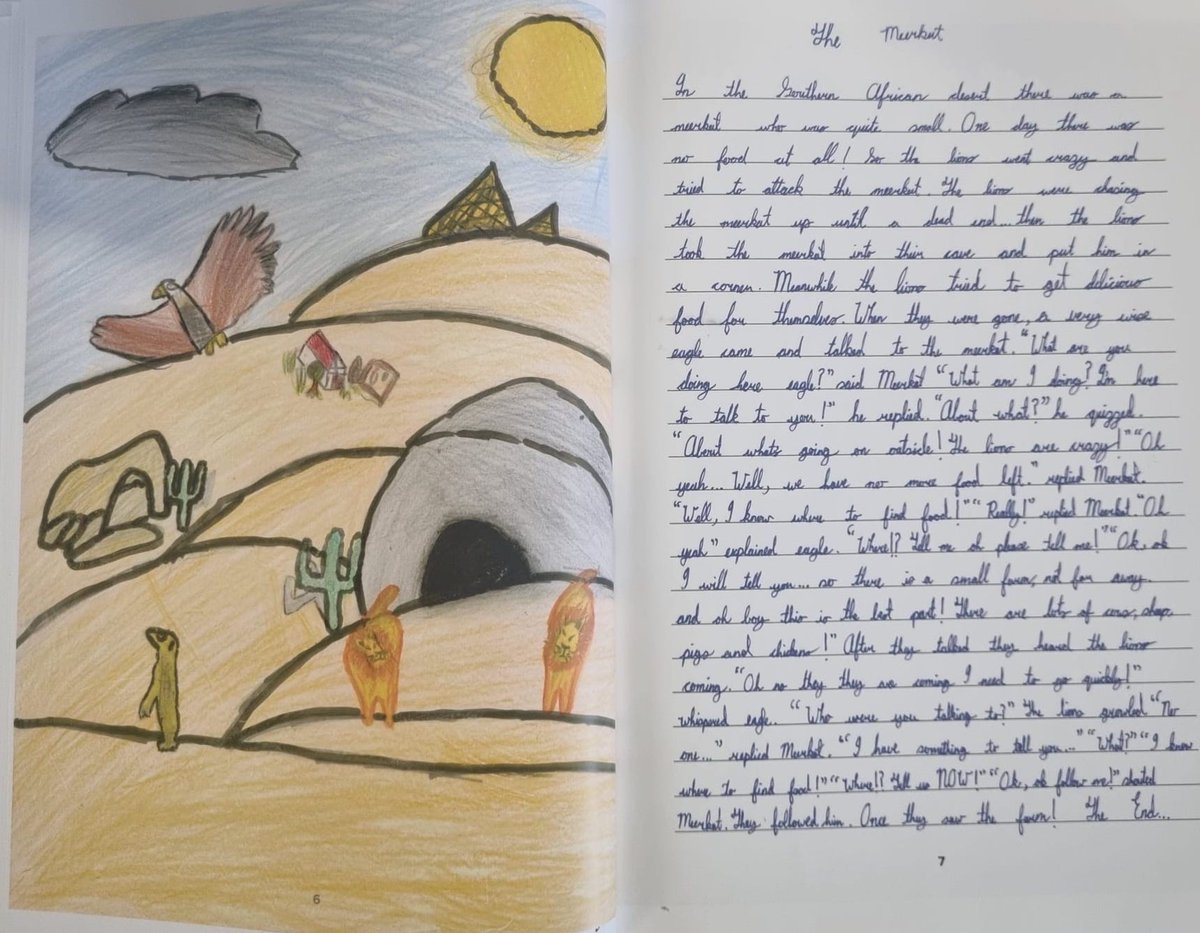 The Meerkat
In the Southern African desert there was a
meerkat who was quite small. One day there was
no food at all! So the lions went crazy and
tried to attack the meerkat. The lions were chasing
the meerkat up until a dead end... then the lions
took the meerkat into their cave and put him in
a corner. Meanwhile the lions tried to get delicious
food for themselves. When they were gone, a very wise
eagle came and talked to the meerkat. "What are you
doing here eagle?" said Meerkat "What am I doing? I'm here
to talk to you!" he replied. "About what?" he quizzed.
"About whats going on outside! The lions are crazy!" "Oh
yeah... Well, we have no more food left." replied Meerkat.
"Well, I know where to find food!" "Really!" replied Meerkat "Oh
yeah" explained eagle. "Where!? Tell me oh please tell me!" "Ok, ok
I will tell you... so there is a small farm, not far away
and oh boy this is the best part! There are lots of cows, sheep
pigs and chickens!" After they talked they heard the lions
coming. "Oh no they they are coming I need to go quickly!"
whispered eagle. "Who were you talking to?" The lions growled "No
one..." replied Meerkat. "I have something to tell you..." "What?" "I know
where to find food!" "Where!? Tell us NOW!" "Ok, ok follow me!" shouted
Meerkat. They followed him. Once they saw the farm! The End...
6
7